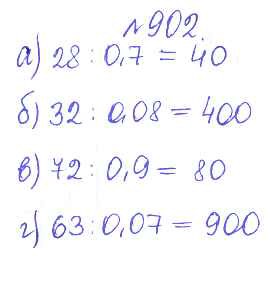 №902.
а) 28 : 0,7 = 40
б) 32 : 0,08 = 400
в) 72 : 0,9 = 80
г) 63 : 0,07 = 900